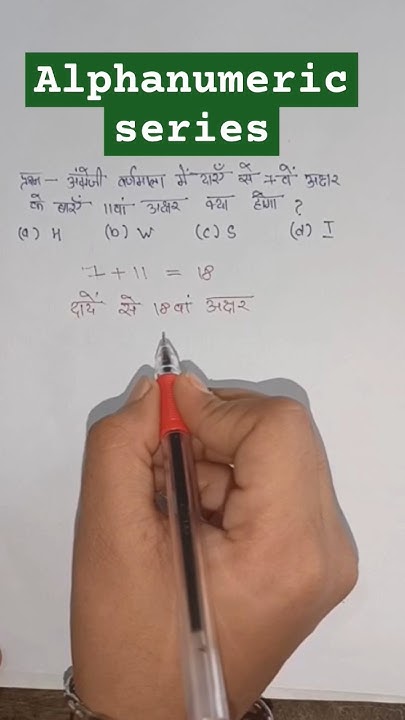 Alphanumeric
series
प्रश्न - अंग्रेजी वर्णमाला में दाएँ से 7वें अक्षर
के बाएँ 11वां अक्षर क्या होगा ?
(a) H (b) W (c) S (d) I
7 + 11 = 18
दायें से 18वां अक्षर